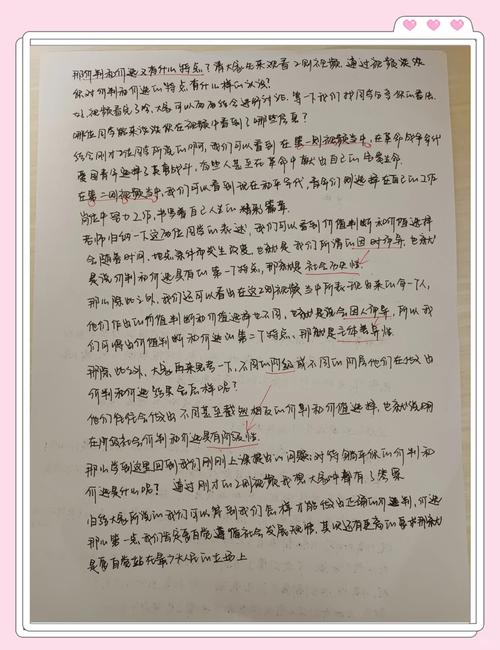 那价判和价选又有什么特点？请大家先来观看2则视频，通过视频谈谈
你对价判和价选的特点有什么样的认识？
好，视频看完了哈，大家可以两两结合进行讨论，等一下我们找同学分享你的看法。
哪位同学能来谈谈你在视频中看到了哪些信息？
结合刚才2位同学所说的啊，我们可以看到在第一则视频当中，在革命战争年代
爱国青年选择了英勇战斗，有些人甚至在革命中献出自己的宝贵生命。
在第二则视频当中，我们可以看到现在和平年代，青年们则选择在自己的工作
岗位中努力工作，书写着自己人生的精彩篇章。
老师归纳一下这两位同学的表达，我们可以看到价值判断和价值选择
会随着时间、地点、条件的变化而改变，也就是我们所谓的因时而异，也就
是说价判和价选具有的第一个特点，那就是社会历史性。
那么除此之外，我们还可以看出在这2则视频当中所表现出来的每一个人，
他们作出的价值判断和价值选择也不同，也就是说会因人而异，所以我
们可得出价值判断和价选的第二个特点，那就是主体差异性。
那除此之外，大家再来思考一下，不同的阶级或不同的阶层他们在做出
价判和价选结果会怎样呢？
他们往往会做出不同甚至截然相反的价判和价值选择，也就说明
在阶级社会价判和价选具有阶级性。
那么学到这里回到我们刚刚上课提出的问题：对待躺平你的价判和
价选是什么呢？ 通过刚才的2则视频我想大家心中都有了答案
归结大家所说的我们可以看到我们怎样才能做出正确的价判，价选
那么第一点，我们首先要自觉遵循社会发展规律，其次还有更高的要求那就
是要自觉站在最广大人民的立场上